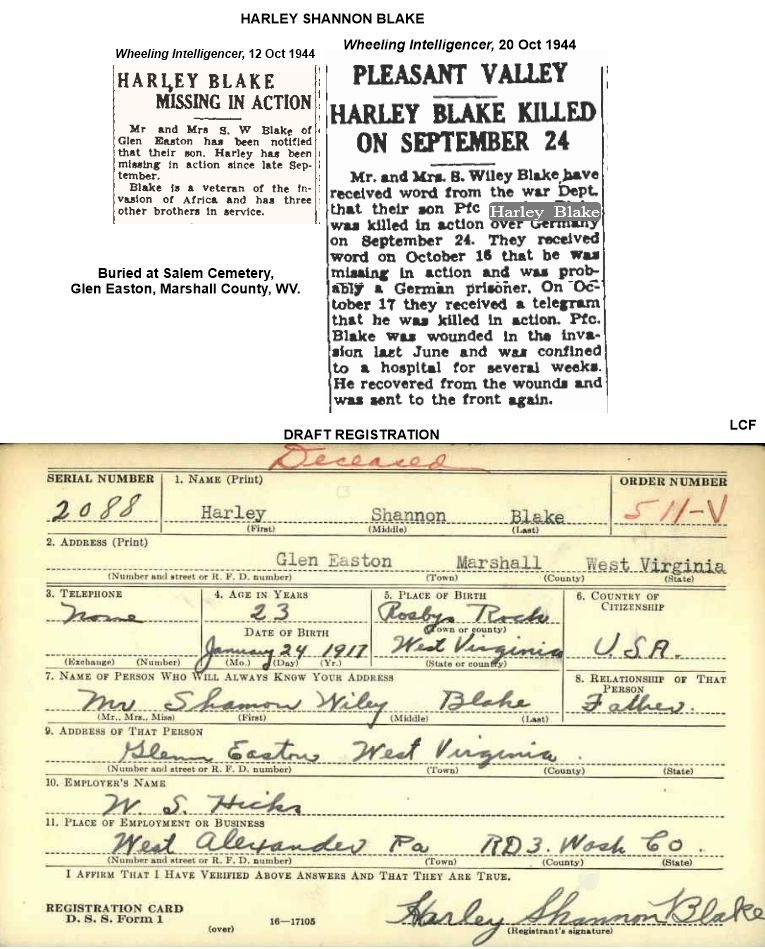 HARLEY SHANNON BLAKE
Wheeling Intelligencer, 12 Oct 1944
HARLEY BLAKE
MISSING IN ACTION
Mr and Mrs S. W Blake of
Glen Easton has been notified
that their son. Harley has been
missing in action since late Sep-
tember.
Blake is a veteran of the in-
vasion of Africa and has three
other brothers in service.
Buried at Salem Cemetery,
Glen Easton, Marshall County, WV.
Wheeling Intelligencer, 20 Oct 1944
PLEASANT VALLEY
HARLEY BLAKE KILLED
ON SEPTEMBER 24
Mr. and Mrs. S. Wiley Blake have
received word from the war Dept.
that their son Pfc Harley Blake
was killed in action over Germany
on September 24. They received
word on October 16 that he was
missing in action and was prob-
ably a German prisoner. On Oc-
tober 17 they received a telegram
that he was killed in action. Pfc.
Blake was wounded in the inva-
sion last June and was confined
to a hospital for several weeks.
He recovered from the wounds and
was sent to the front again.
LCF
DRAFT REGISTRATION
Deceased
SERIAL NUMBER 1. NAME (Print) ORDER NUMBER
2088 Harley Shannon Blake 511-V
(First) (Middle) (Last)
2. ADDRESS (Print)
Glen Easton Marshall West Virginia
(Number and street or R. F. D. number) (Town) (County) (State)
3. TELEPHONE 4. AGE IN YEARS 5. PLACE OF BIRTH 6. COUNTRY OF CITIZENSHIP
None 23 Rosbys Rock
DATE OF BIRTH (Town or county)
January 24 1917 West Virginia U.S.A.
(Exchange) (Number) (Mo.) (Day) (Yr.) (State or country)
7. NAME OF PERSON WHO WILL ALWAYS KNOW YOUR ADDRESS 8. RELATIONSHIP OF THAT PERSON
Mr Shannon Wiley Blake Father.
(Mr., Mrs., Miss) (First) (Middle) (Last)
9. ADDRESS OF THAT PERSON
Glenn Easton West Virginia.
(Number and street or R. F. D. number) (Town) (County) (State)
10. EMPLOYER'S NAME
W. S. Hicks
11. PLACE OF EMPLOYMENT OR BUSINESS
West Alexander Pa RD3. Wash Co.
(Number and street or R. F. D. number) (Town) (County) (State)
I AFFIRM THAT I HAVE VERIFIED ABOVE ANSWERS AND THAT THEY ARE TRUE.
REGISTRATION CARD
D. S. S. Form 1 16—17105
(over)
Harley Shannon Blake
(Registrant's signature)